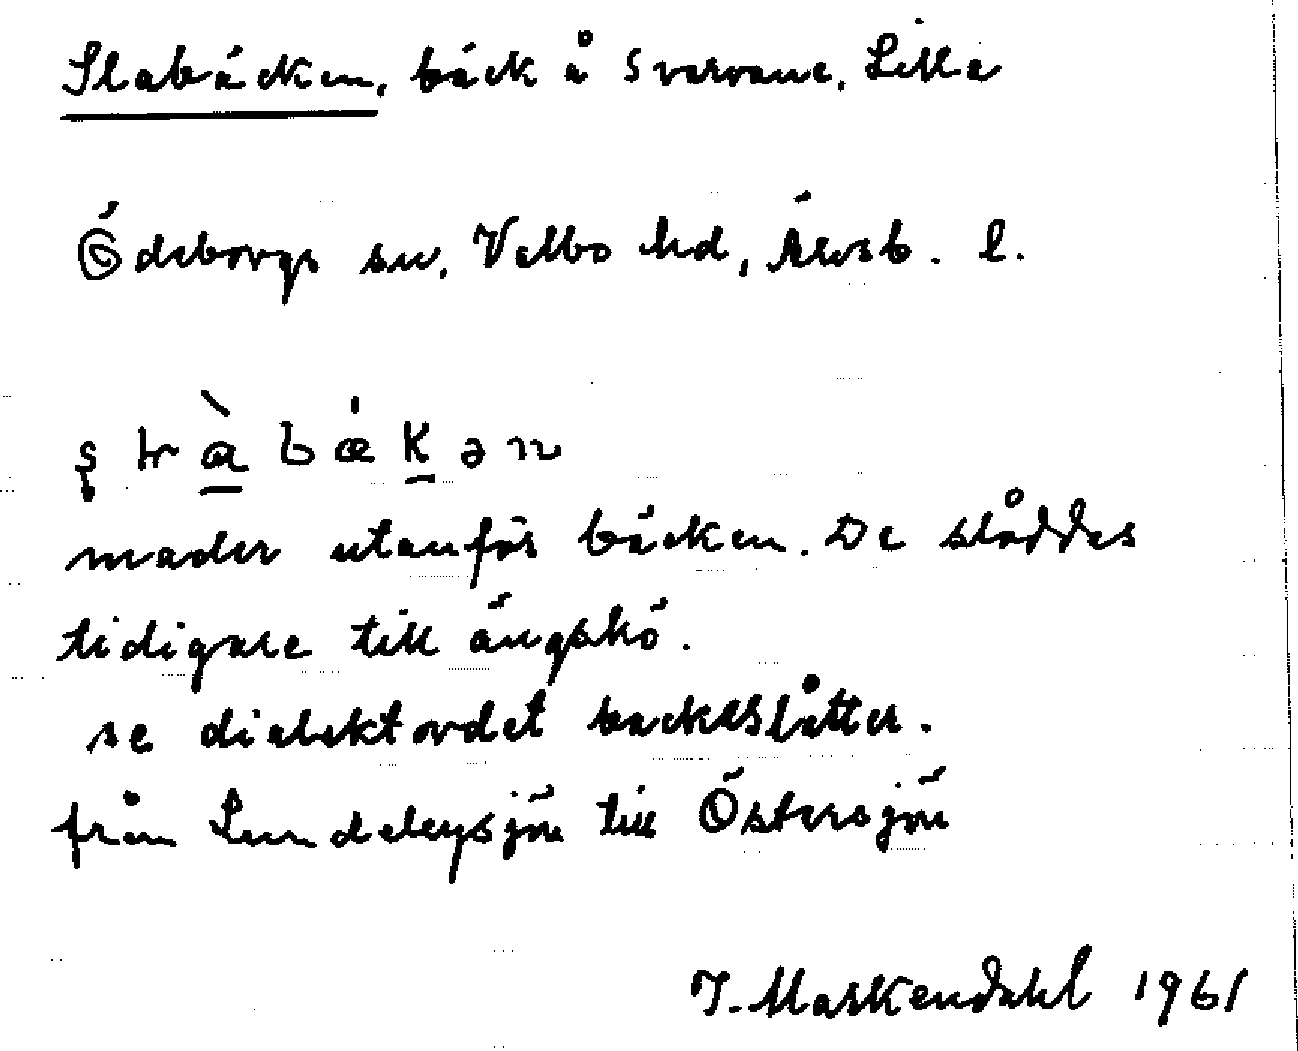 Slabäcken, bäck å Svarvane, Lilla
Ödeborgs sn, Valbo hd, Älvsb. l.
mader utanför bäcken. De slåddes
tidigare till ängshö.
se dialektordet backslåtter.
från Lundelysjön till Östersjön
I. Markendahl 1961